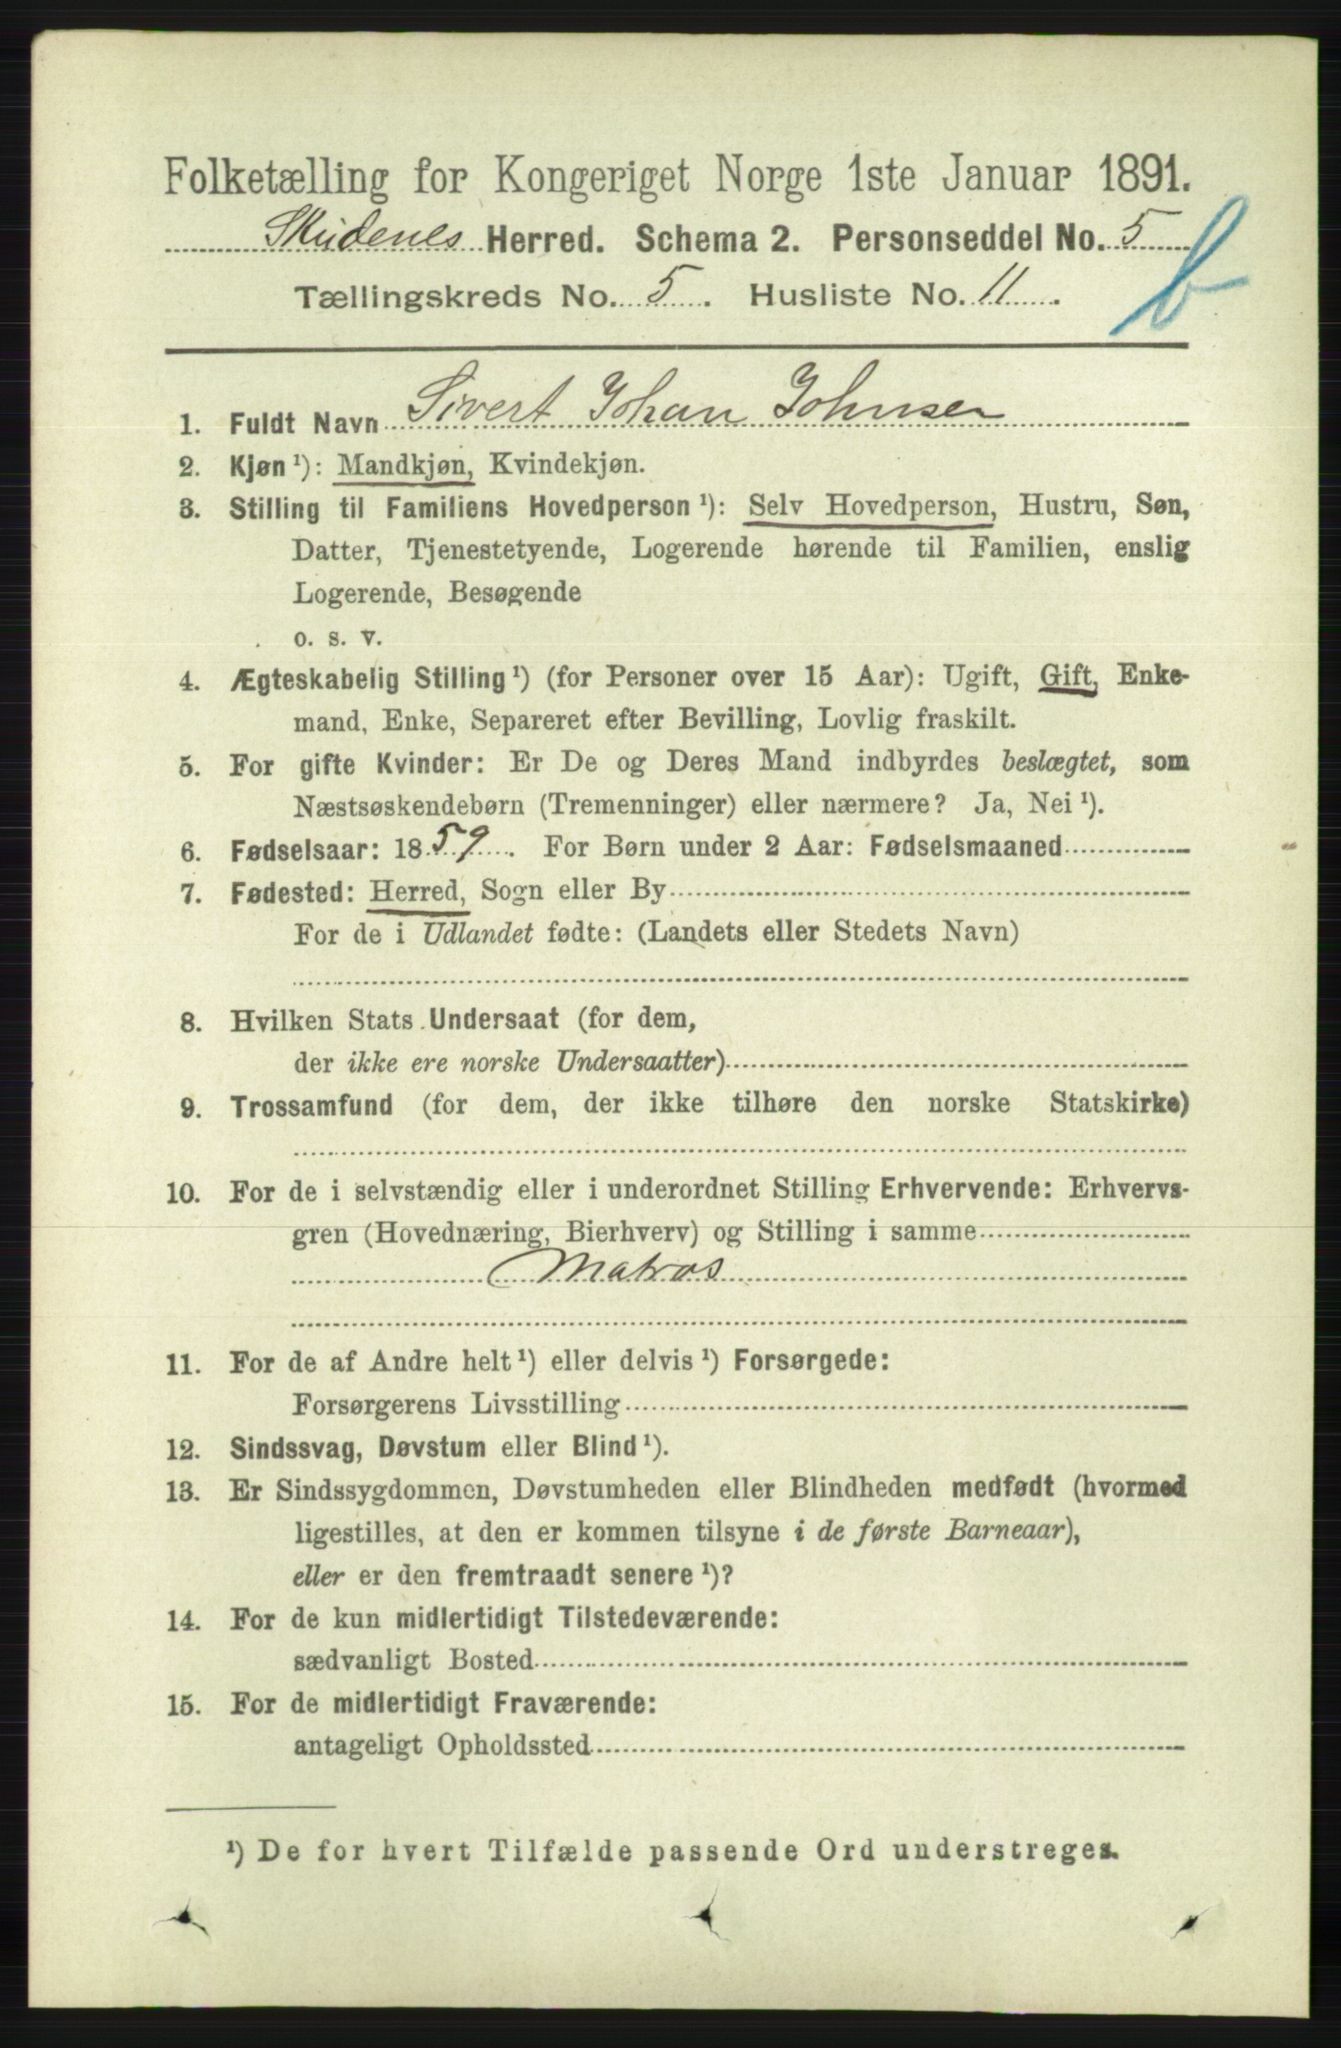 Folketælling for Kongeriget Norge 1ste Januar 1891.
Skudenes Herred. Schema 2. Personseddel No. 5
Tællingskreds No. 5. Husliste No. 11.
b
1. Fuldt Navn Sivert Johan Johnsen
2. Kjøn ¹): Mandkjøn, Kvindekjøn.
3. Stilling til Familiens Hovedperson ¹): Selv Hovedperson, Hustru, Søn,
Datter, Tjenestetyende, Logerende hørende til Familien, enslig
Logerende, Besøgende
o. s. v.
4. Ægteskabelig Stilling ¹) (for Personer over 15 Aar): Ugift, Gift, Enke-
mand, Enke, Separeret efter Bevilling, Lovlig fraskilt.
5. For gifte Kvinder: Er De og Deres Mand indbyrdes beslægtet, som
Næstsøskendebørn (Tremenninger) eller nærmere? Ja, Nei ¹).
6. Fødselsaar: 1859. For Børn under 2 Aar: Fødselsmaaned
7. Fødested: Herred, Sogn eller By
For de i Udlandet fødte: (Landets eller Stedets Navn)
8. Hvilken Stats Undersaat (for dem,
der ikke ere norske Undersaatter)
9. Trossamfund (for dem, der ikke tilhøre den norske Statskirke)
10. For de i selvstændig eller i underordnet Stilling Erhvervende: Erhvervs-
gren (Hovednæring, Bierhverv) og Stilling i samme
Matros
11. For de af Andre helt ¹) eller delvis ¹) Forsørgede:
Forsørgerens Livsstilling
12. Sindssvag, Døvstum eller Blind ¹).
13. Er Sindssygdommen, Døvstumheden eller Blindheden medfødt (hvormed
ligestilles, at den er kommen tilsyne i de første Barneaar),
eller er den fremtraadt senere ¹)?
14. For de kun midlertidigt Tilstedeværende:
sædvanligt Bosted
15. For de midlertidigt Fraværende:
antageligt Opholdssted
¹) De for hvert Tilfælde passende Ord understreges.